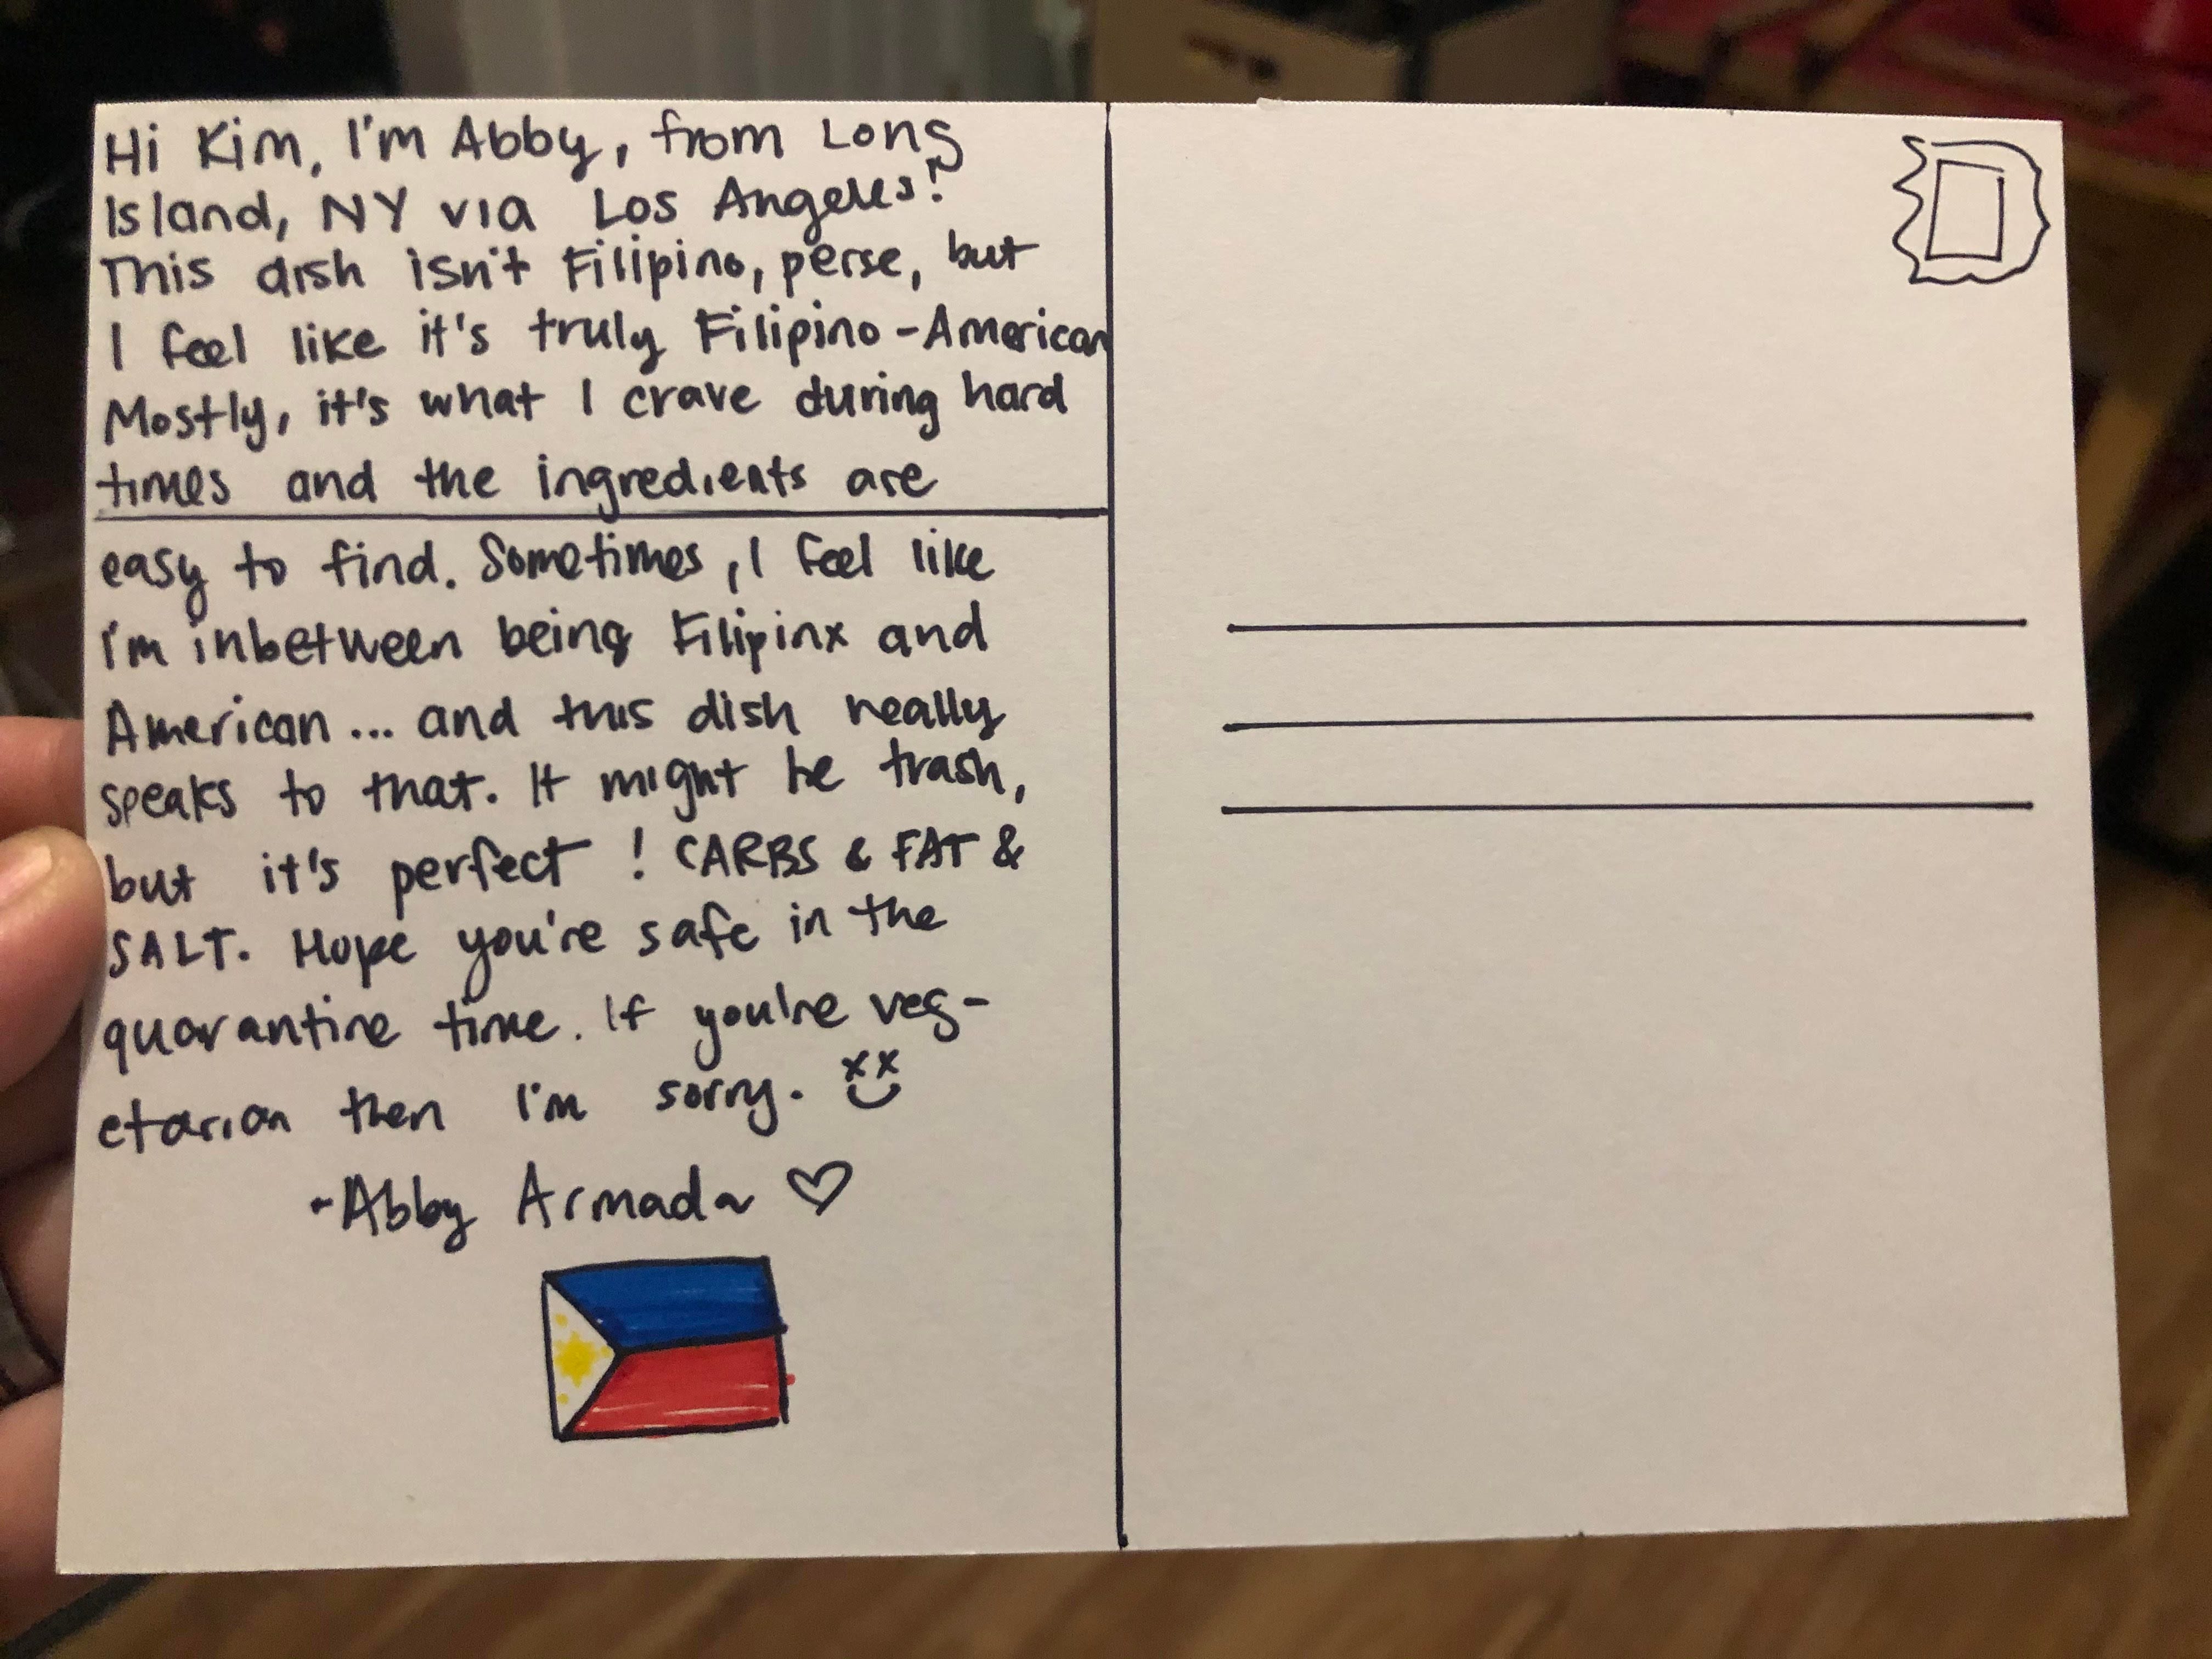 Hi Kim, I'm Abby, from Long
Island, NY via Los Angeles!
This dish isn't Filipino, perse, but
I feel like it's truly Filipino-American
Mostly, it's what I crave during hard
times and the ingredients are
easy to find. Sometimes, I feel like
I'm inbetween being Filipinx and
American... and this dish really
speaks to that. It might be trash,
but it's perfect! CARBS & FAT &
SALT. Hope you're safe in the
quarantine time. If you're veg-
etarian then I'm sorry.
-Abby Armada